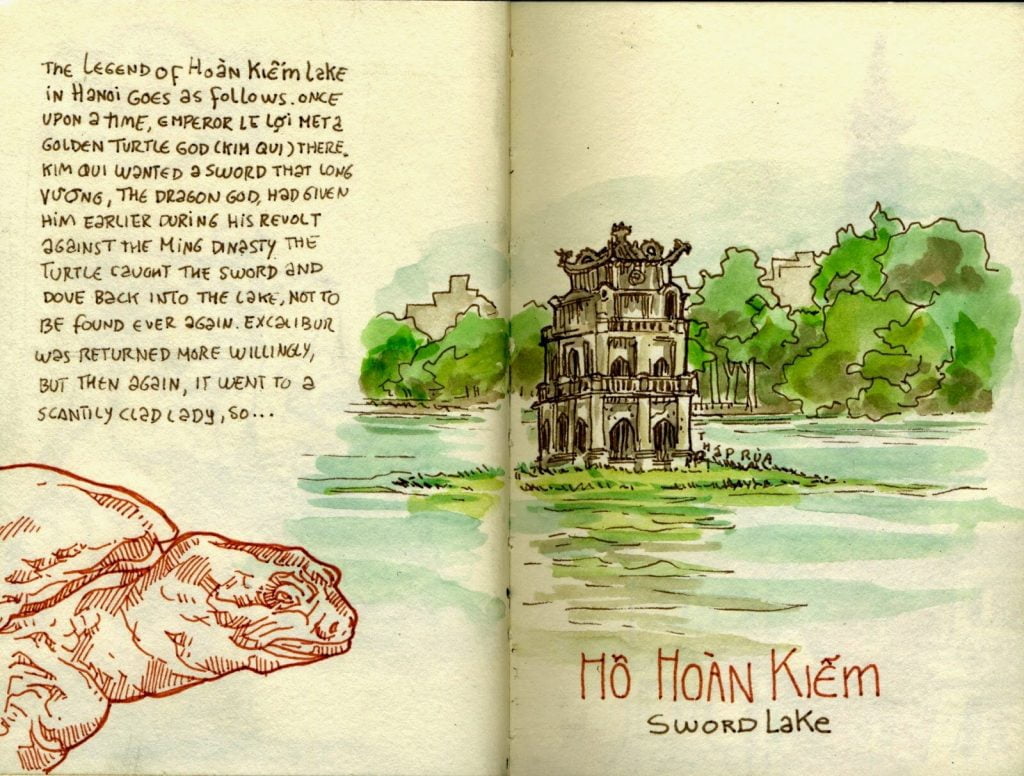 THE LEGEND OF HOÀN KIẾM LAKE
IN HANOI GOES AS FOLLOWS. ONCE
UPON A TIME, EMPEROR LE LỢI MET A
GOLDEN TURTLE GOD (KIM QUI) THERE.
KIM QUI WANTED A SWORD THAT LONG
VƯƠNG, THE DRAGON GOD, HAD GIVEN
HIM EARLIER DURING HIS REVOLT
AGAINST THE MING DINASTY THE
TURTLE CAUGHT THE SWORD AND
DOVE BACK INTO THE LAKE, NOT TO
BE FOUND EVER AGAIN. EXCALIBUR
WAS RETURNED MORE WILLINGLY,
BUT THEN AGAIN, IT WENT TO A
SCANTILY CLAD LADY, SO...
THÁP RÙA
HỒ HOÀN KIẾM
SWORD LAKE